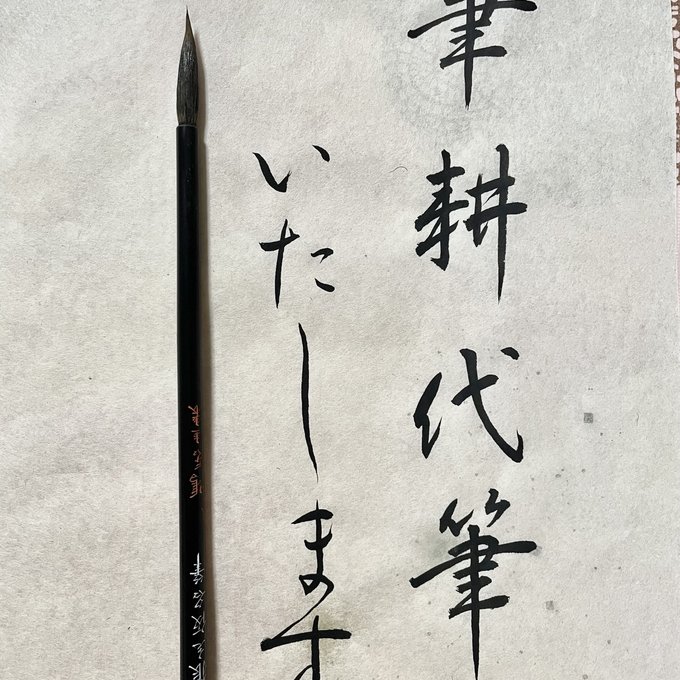 筆耕代筆
いたします